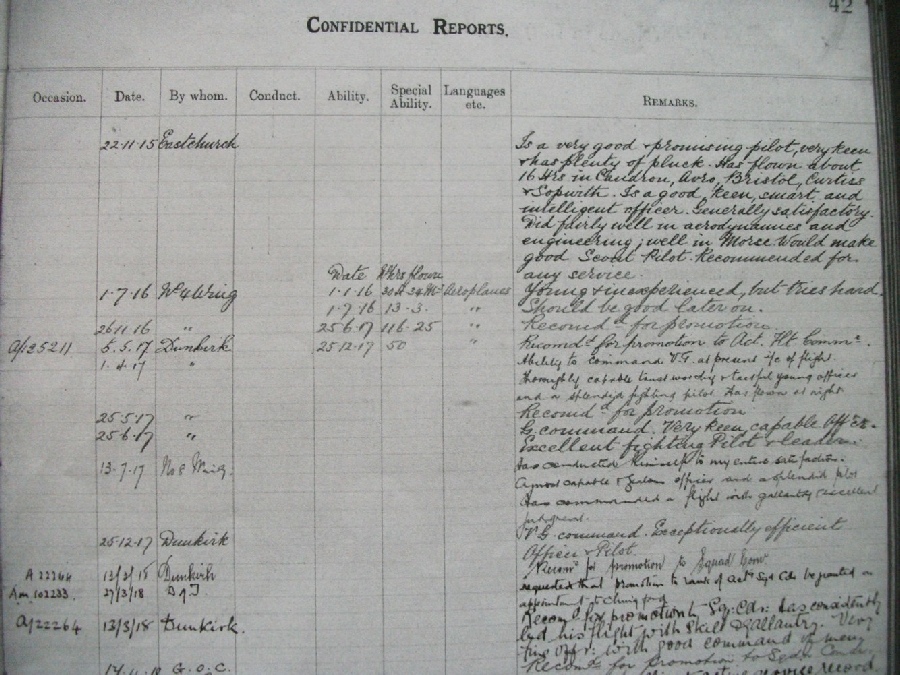 42
CONFIDENTIAL REPORTS.
Occasion. Date. By whom. Conduct. Ability. Special Ability. Languages etc. REMARKS.
22·11·15 Eastchurch Is a very good & promising pilot, very keen
& has plenty of pluck. Has flown about
16 Hrs in Caudron, Avro, Bristol, Curtiss
& Sopwith. Is a good, keen, smart and
intelligent officer. Generally satisfactory.
Did fairly well in aerodynamics and
engineering; well in Morse. Would make
good Scout Pilot. Recommended for
Date Hrs flown any service.
1·7·16 No 4 Wing 1·1·16 Aeroplanes Young & inexperienced, but tries hard.
1·7·16 13·3· " Should be good later on.
26·11·16 " 25·6·17 116·25 " Recomd for promotion
5.5.17 Dunkirk 25·12·17 50 Recomd for promotion to Act. Flt Commr.
1·4·17 " Ability to command V.G. at present i/c of flight.
Thoroughly capable trustworthy & tactful young officer
and a splendid fighting pilot. Has flown at night
25·5·17 " Recomd for promotion
25·6·17 " G. command. Very keen, capable Officer.
Excellent fighting Pilot & leader.
13·7·17 Wing. Has conducted himself to my entire satisfaction.
A most capable & zealous officer and a splendid pilot
Has commanded a flight with gallantry & excellent
judgment.
25·12·17 Dunkirk V.G. command. Exceptionally efficient
Officer & Pilot.
A 22264 13/3/18 Dunkirk Recomd for promotion to Squad Comr.
27/3/18 requested that promotion to rank of Actg Sqd Cdr be granted on
appointment
A/22264 13/3/18 Dunkirk. Recomd for promotion to Sq. Cdr: has consistently
led his flight with skill & gallantry. Very
fine offr: with good command of men
G.O.C. Recomd for promotion to Sqdn Comdr.